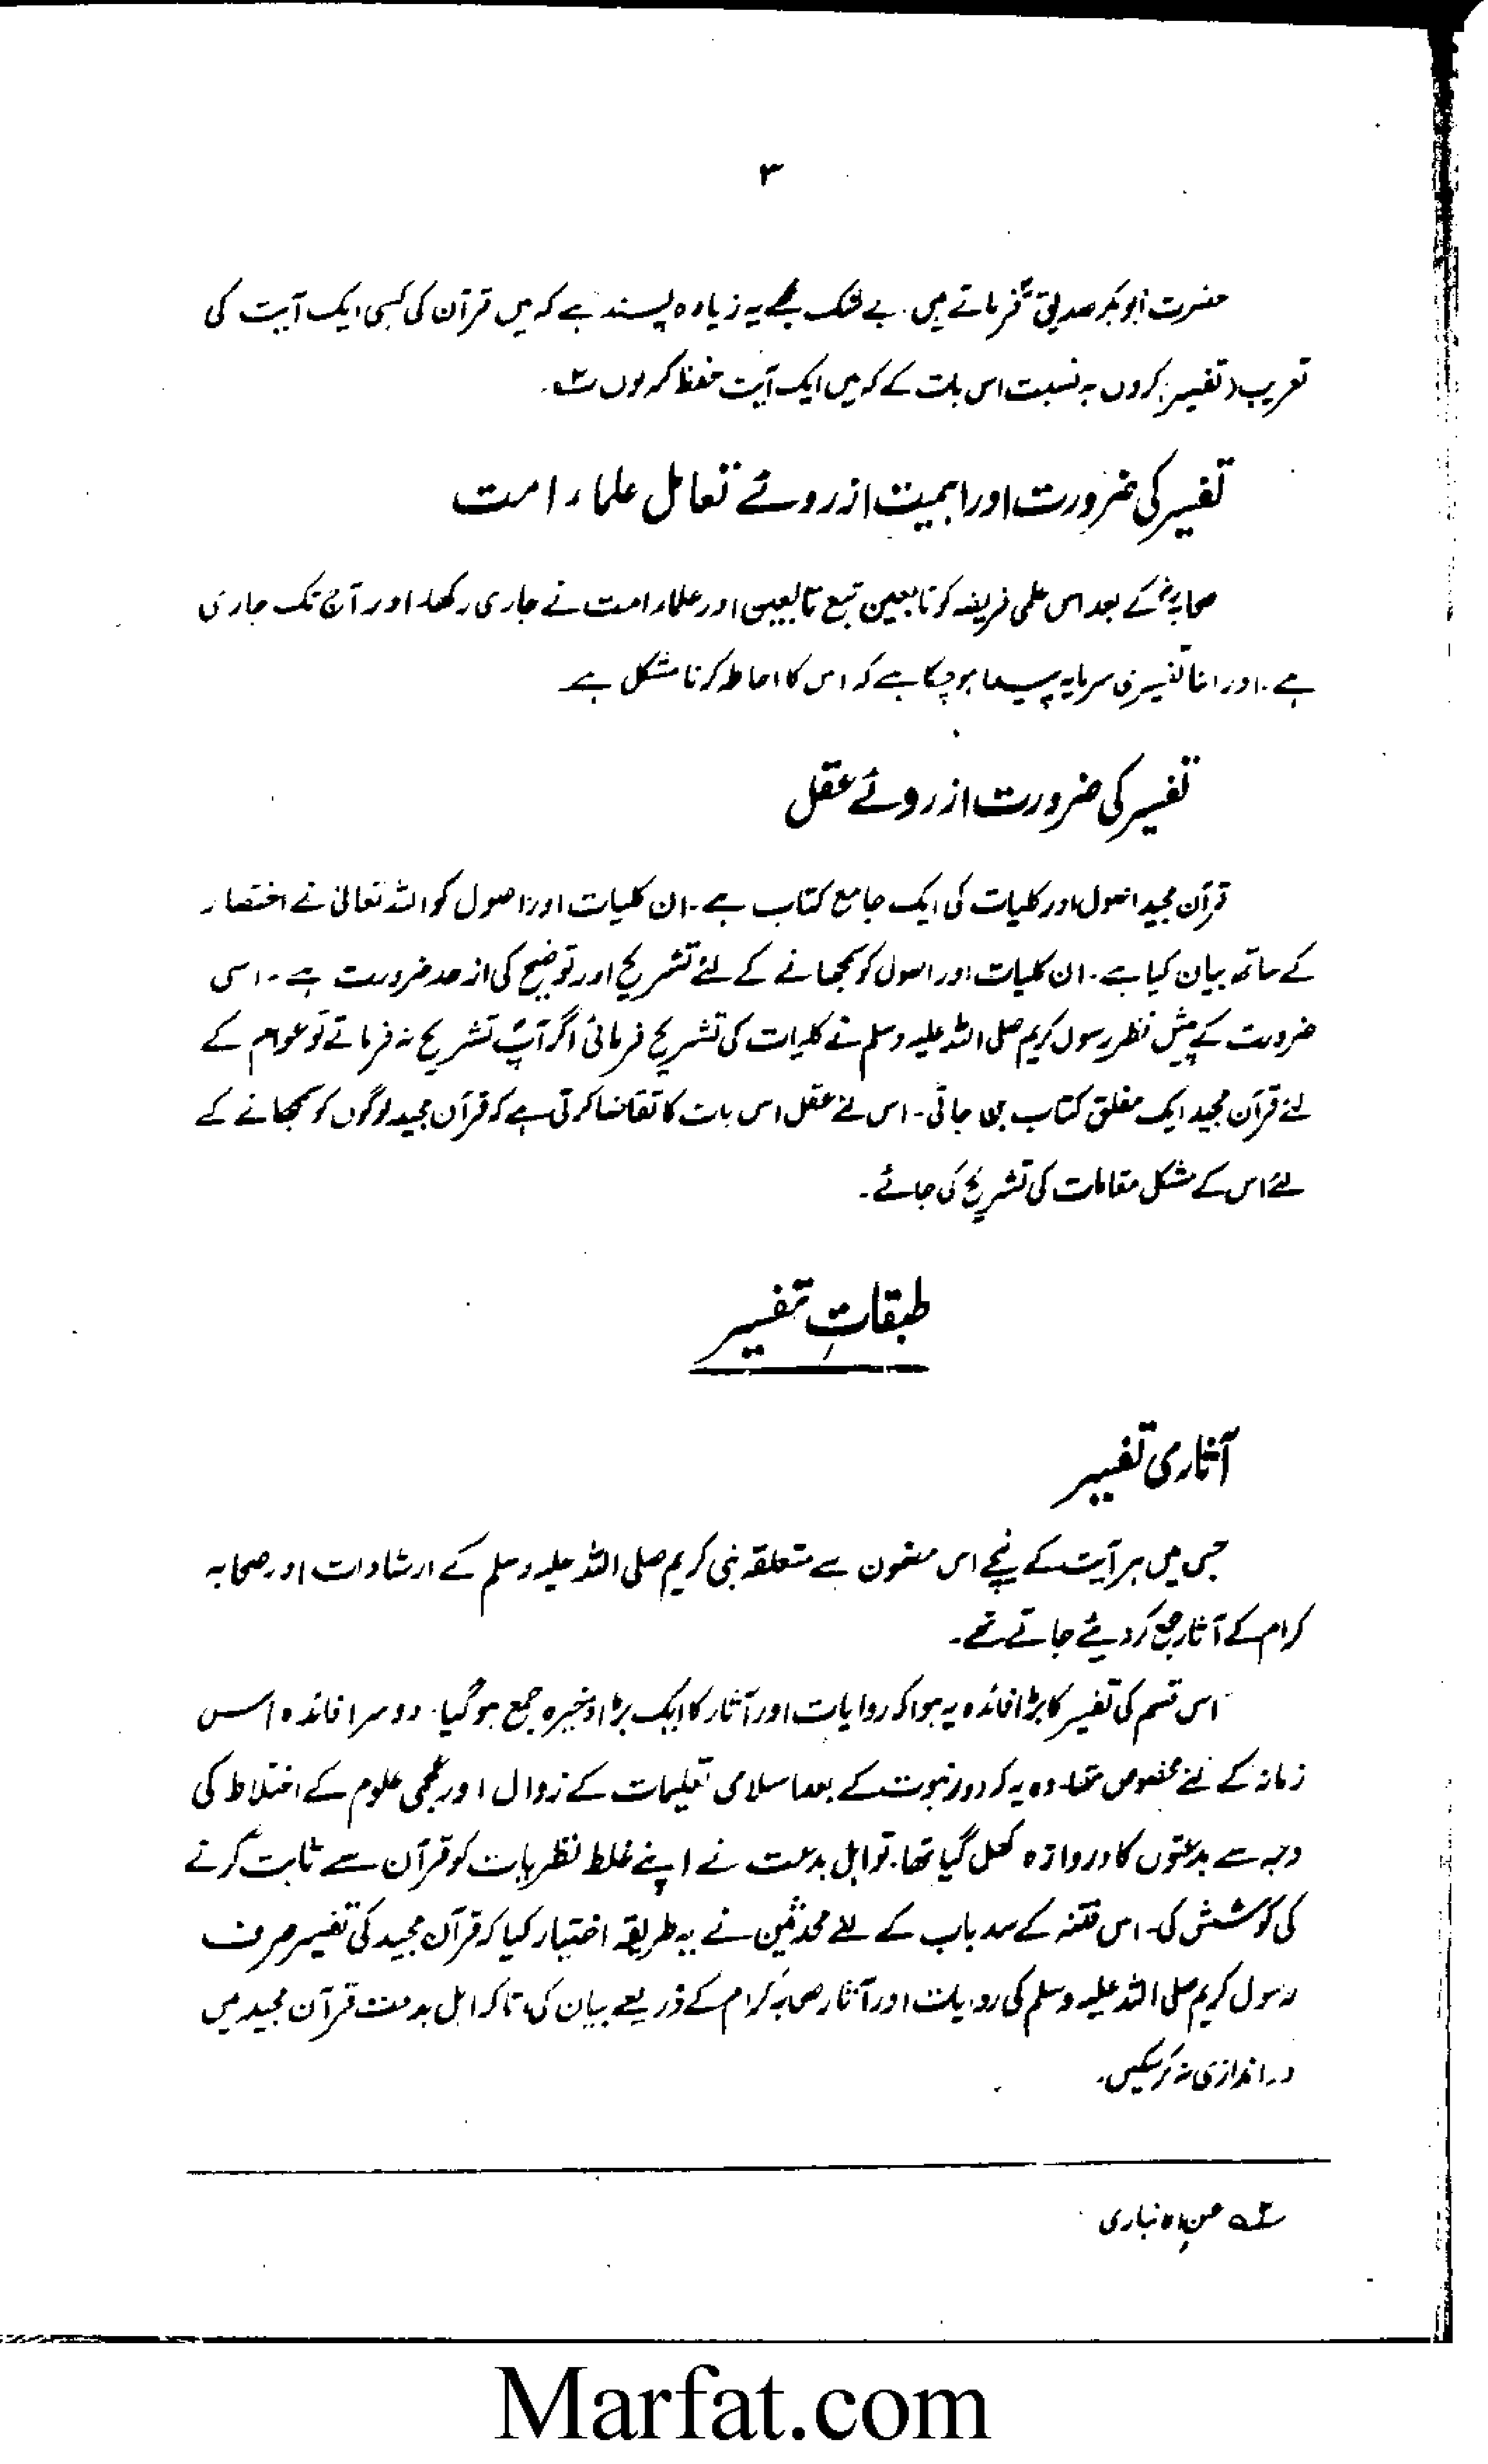 ۳
حضرت ابوبکر صدیقؓ فرماتے ہیں۔ بے شک مجھے یہ زیادہ پسند ہے کہ میں قرآن کی کسی ایک آیت کی
تعریب (تفسیر) کروں بہ نسبت اس بات کے کہ میں ایک آیت حفظ کر لوں ؎۲۔
تفسیر کی ضرورت اور اہمیت از روئے تعامل علماء امت
صحابہؓ کے بعد اس علمی فریضہ کو تابعین تبع تابعین اور علماء امت نے جاری رکھا۔ اور آج تک جاری
ہے۔ اور اتنا تفسیری سرمایہ پیدا ہو چکا ہے کہ اس کا احاطہ کرنا مشکل ہے
تفسیر کی ضرورت از روئے عقل
قرآن مجید اصول اور کلیات کی ایک جامع کتاب ہے۔ ان کلیات اور اصول کو اللہ تعالیٰ نے اختصار
کے ساتھ بیان کیا ہے۔ ان کلیات اور اصول کو سمجھانے کے لئے تشریح اور توضیح کی از حد ضرورت ہے۔ اسی
ضرورت کے پیش نظر رسول کریم صلی اللہ علیہ وسلم نے کلیات کی تشریح فرمائی اگر آپؐ تشریح نہ فرماتے تو عوام کے
لئے قرآن مجید ایک مغلق کتاب بن جاتی۔ اس لئے عقل اس بات کا تقاضا کرتی ہے کہ قرآن مجید لوگوں کو سمجھانے کے
لئے اس کے مشکل مقامات کی تشریح کی جائے۔
طبقاتِ تفسیر
آثاری تفسیر
جس میں ہر آیت کے نیچے اس مضمون سے متعلقہ نبی کریم صلی اللہ علیہ وسلم کے ارشادات اور صحابہ
کرام کے آثار جمع کر دیئے جاتے تھے۔
اس قسم کی تفسیر کا بڑا فائدہ یہ ہوا کہ روایات اور آثار کا ایک بڑا ذخیرہ جمع ہو گیا۔ دوسرا فائدہ اس
زمانہ کے لئے مخصوص تھا۔ وہ یہ کہ دور نبوت کے بعد اسلامی تعلیمات کے زوال اور عجمی علوم کے اختلاط کی
وجہ سے بدعتوں کا دروازہ کھل گیا تھا۔ تو اہل بدعت نے اپنے غلط نظریات کو قرآن سے ثابت کرنے
کی کوشش کی۔ اس فتنہ کے سد باب کے لئے محدثین نے یہ طریقہ اختیار کیا کہ قرآن مجید کی تفسیر صرف
رسول کریم صلی اللہ علیہ وسلم کی روایات اور آثار صحابہ کرام کے ذریعے بیان کی، تاکہ اہل بدعت قرآن مجید میں
دراندازی نہ کر سکیں۔
؎۲
Marfat.com